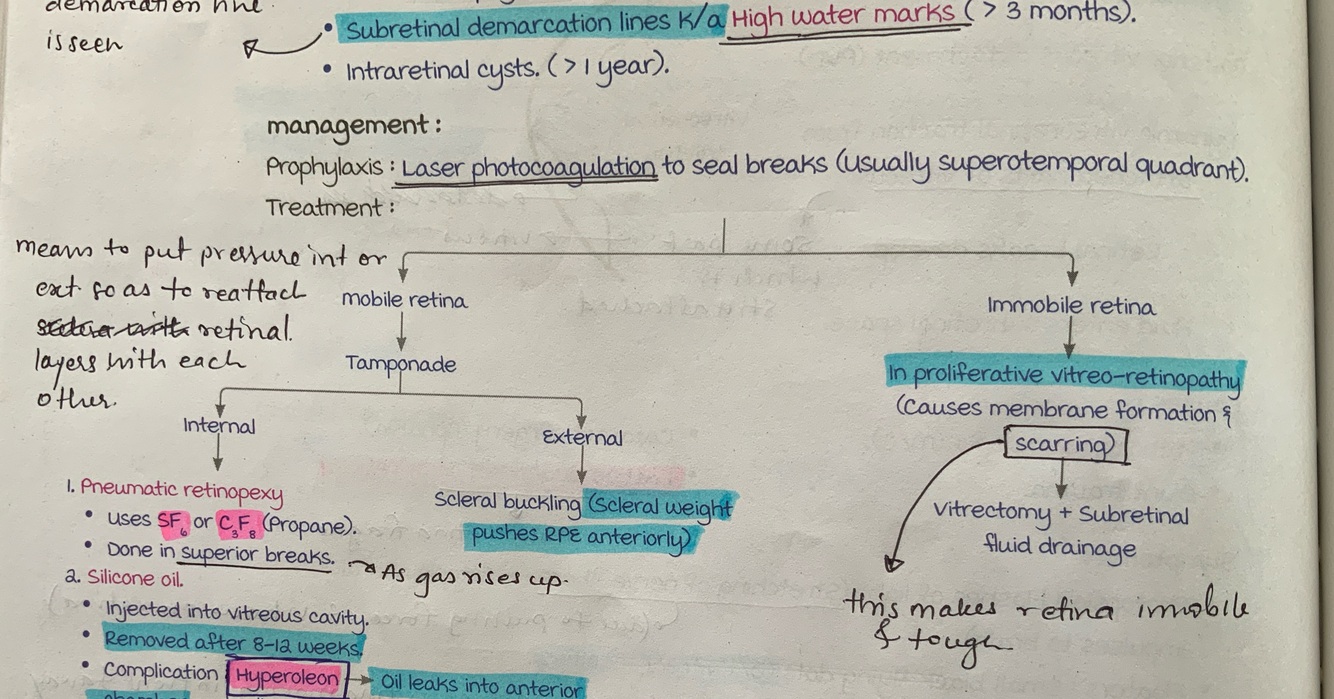 demarcation line
is seen
• Subretinal demarcation lines K/a High water marks ( > 3 months).
• Intraretinal cysts. ( > 1 year).
management :
Prophylaxis : Laser photocoagulation to seal breaks (usually superotemporal quadrant).
Treatment :
means to put pressure int or
ext so as to reattach
retinal
layers with each
other.
mobile retina
Tamponade
Internal
1. Pneumatic retinopexy
• uses SF6 or C3F8 (Propane).
• Done in superior breaks. → As gas rises up.
2. Silicone oil.
• Injected into vitreous cavity.
• Removed after 8-12 weeks.
• Complication Hyperoleon → Oil leaks into anterior
External
Scleral buckling (Scleral weight
pushes RPE anteriorly)
Immobile retina
In proliferative vitreo-retinopathy
(Causes membrane formation &
scarring)
Vitrectomy + Subretinal
fluid drainage
this makes retina immobile
& tough